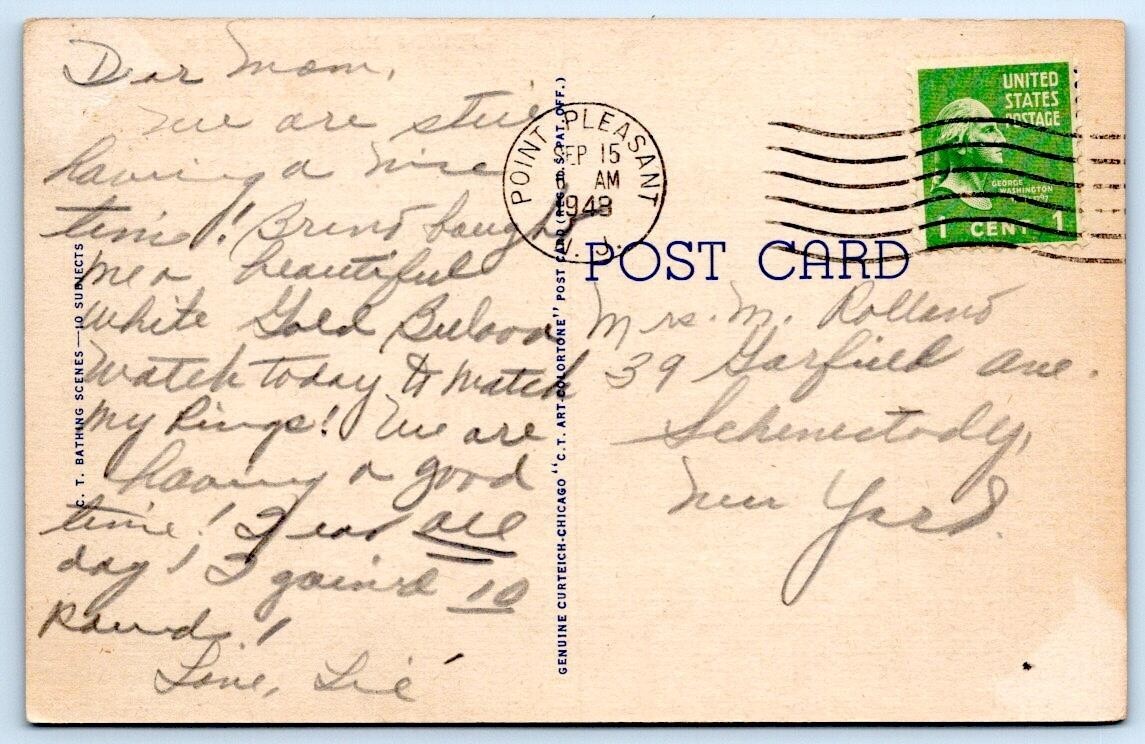 Dear Mom,
We are still
having a nice
time! bought
me a beautiful
White Gold Bulova
Watch today to match
My Rings! We are
having a good
time! I eat all
day! I gained 10
Pounds!
Love,
C. T. BATHING SCENES—10 SUBJECTS
GENUINE CURTEICH-CHICAGO "C.T. ART-COLORTONE" POST CARD (REG. U. S. PAT. OFF.)
POINT PLEASANT
SEP 15
AM
1948
N. J.
UNITED
STATES
POSTAGE
GEORGE
WASHINGTON
1 CENT 1
POST CARD
Mrs. M. Rolland
39 Garfield Ave.
Schenectady,
New York.